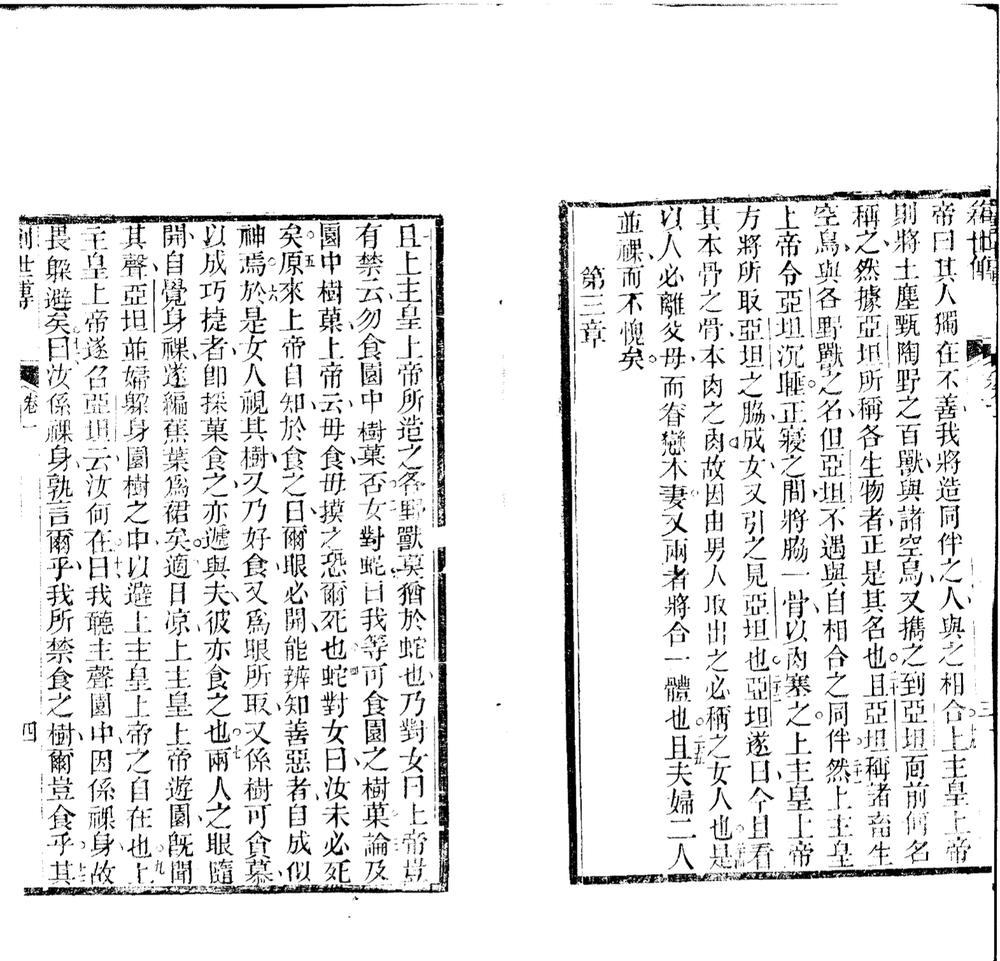 帝曰其人獨在不善我將造同伴之人與之相合上主皇上帝
則將土塵甄陶野之百獸與諸空鳥又攜之到亞坦面前何名
稱之然據亞坦所稱各生物者正是其名也且亞坦稱諸畜生
空鳥與各野獸之名但亞坦不遇與自相合之同伴然上主皇
上帝令亞坦沉睡正寢之間將脇一骨以肉塞之上主皇上帝
方將所取亞坦之脇成女又引之見亞坦也亞坦遂曰今且看
其本骨之骨本肉之肉故因由男人取出之必稱之女人也是
以人必離父母而眷戀本妻又兩者將合一體也且夫婦二人
並祼而不愧矣
第三章
且上主皇上帝所造之各野獸莫猶於蛇也乃對女曰上帝豈
有禁云勿食園中樹菓否女對蛇曰我等可食園之樹菓論及
園中樹菓上帝云毋食毋摸之恐爾死也蛇對女曰汝未必死
矣原來上帝自知於食之日爾眼必開能辨知善惡者自成似
神焉於是女人視其樹又乃好食又爲眼所取又係樹可貪慕
以成巧捷者卽採菓食之亦遞與夫彼亦食之也兩人之眼隨
開自覺身祼遂編蕉葉爲裙矣適日凉上主皇上帝遊園旣聞
其聲亞坦並婦躲身園樹之中以避上主皇上帝之自在也上
主皇上帝遂召亞坦云汝何在曰我聽主聲園中因係祼身故
畏躲避矣曰汝係祼身孰言爾乎我所禁食之樹爾豈食乎其
創世傳
卷一
四